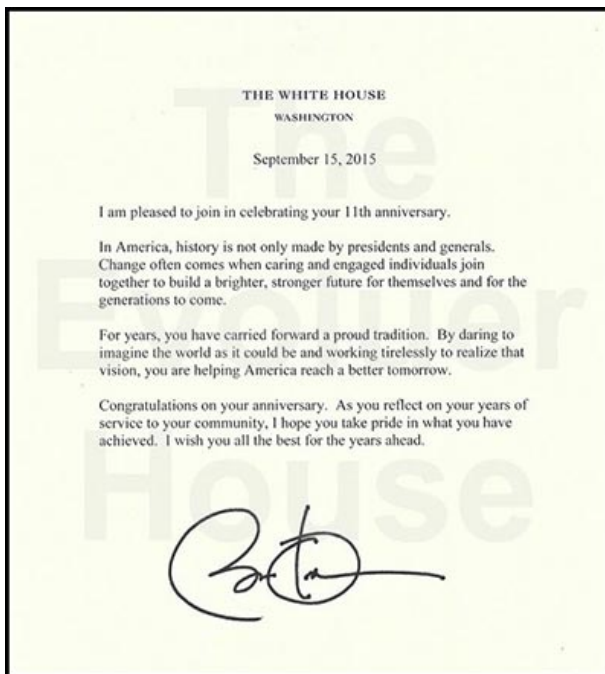 THE WHITE HOUSE
WASHINGTON
September 15, 2015
I am pleased to join in celebrating your 11th anniversary.
In America, history is not only made by presidents and generals.
Change often comes when caring and engaged individuals join
together to build a brighter, stronger future for themselves and for the
generations to come.
For years, you have carried forward a proud tradition. By daring to
imagine the world as it could be and working tirelessly to realize that
vision, you are helping America reach a better tomorrow.
Congratulations on your anniversary. As you reflect on your years of
service to your community, I hope you take pride in what you have
achieved. I wish you all the best for the years ahead.
The
Evoluer
House